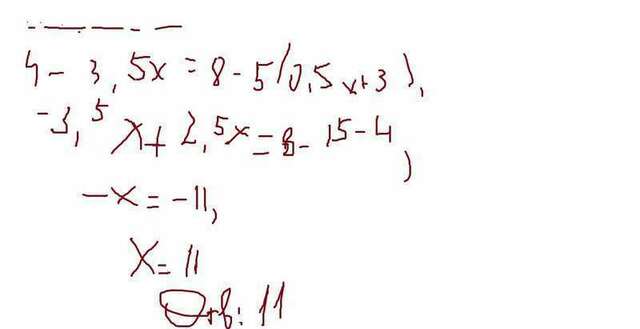 4 - 3,5x = 8 - 5(0,5x+3),
-3,5x + 2,5x = 8 - 15 - 4,
-x = -11,
x = 11
Отв: 11